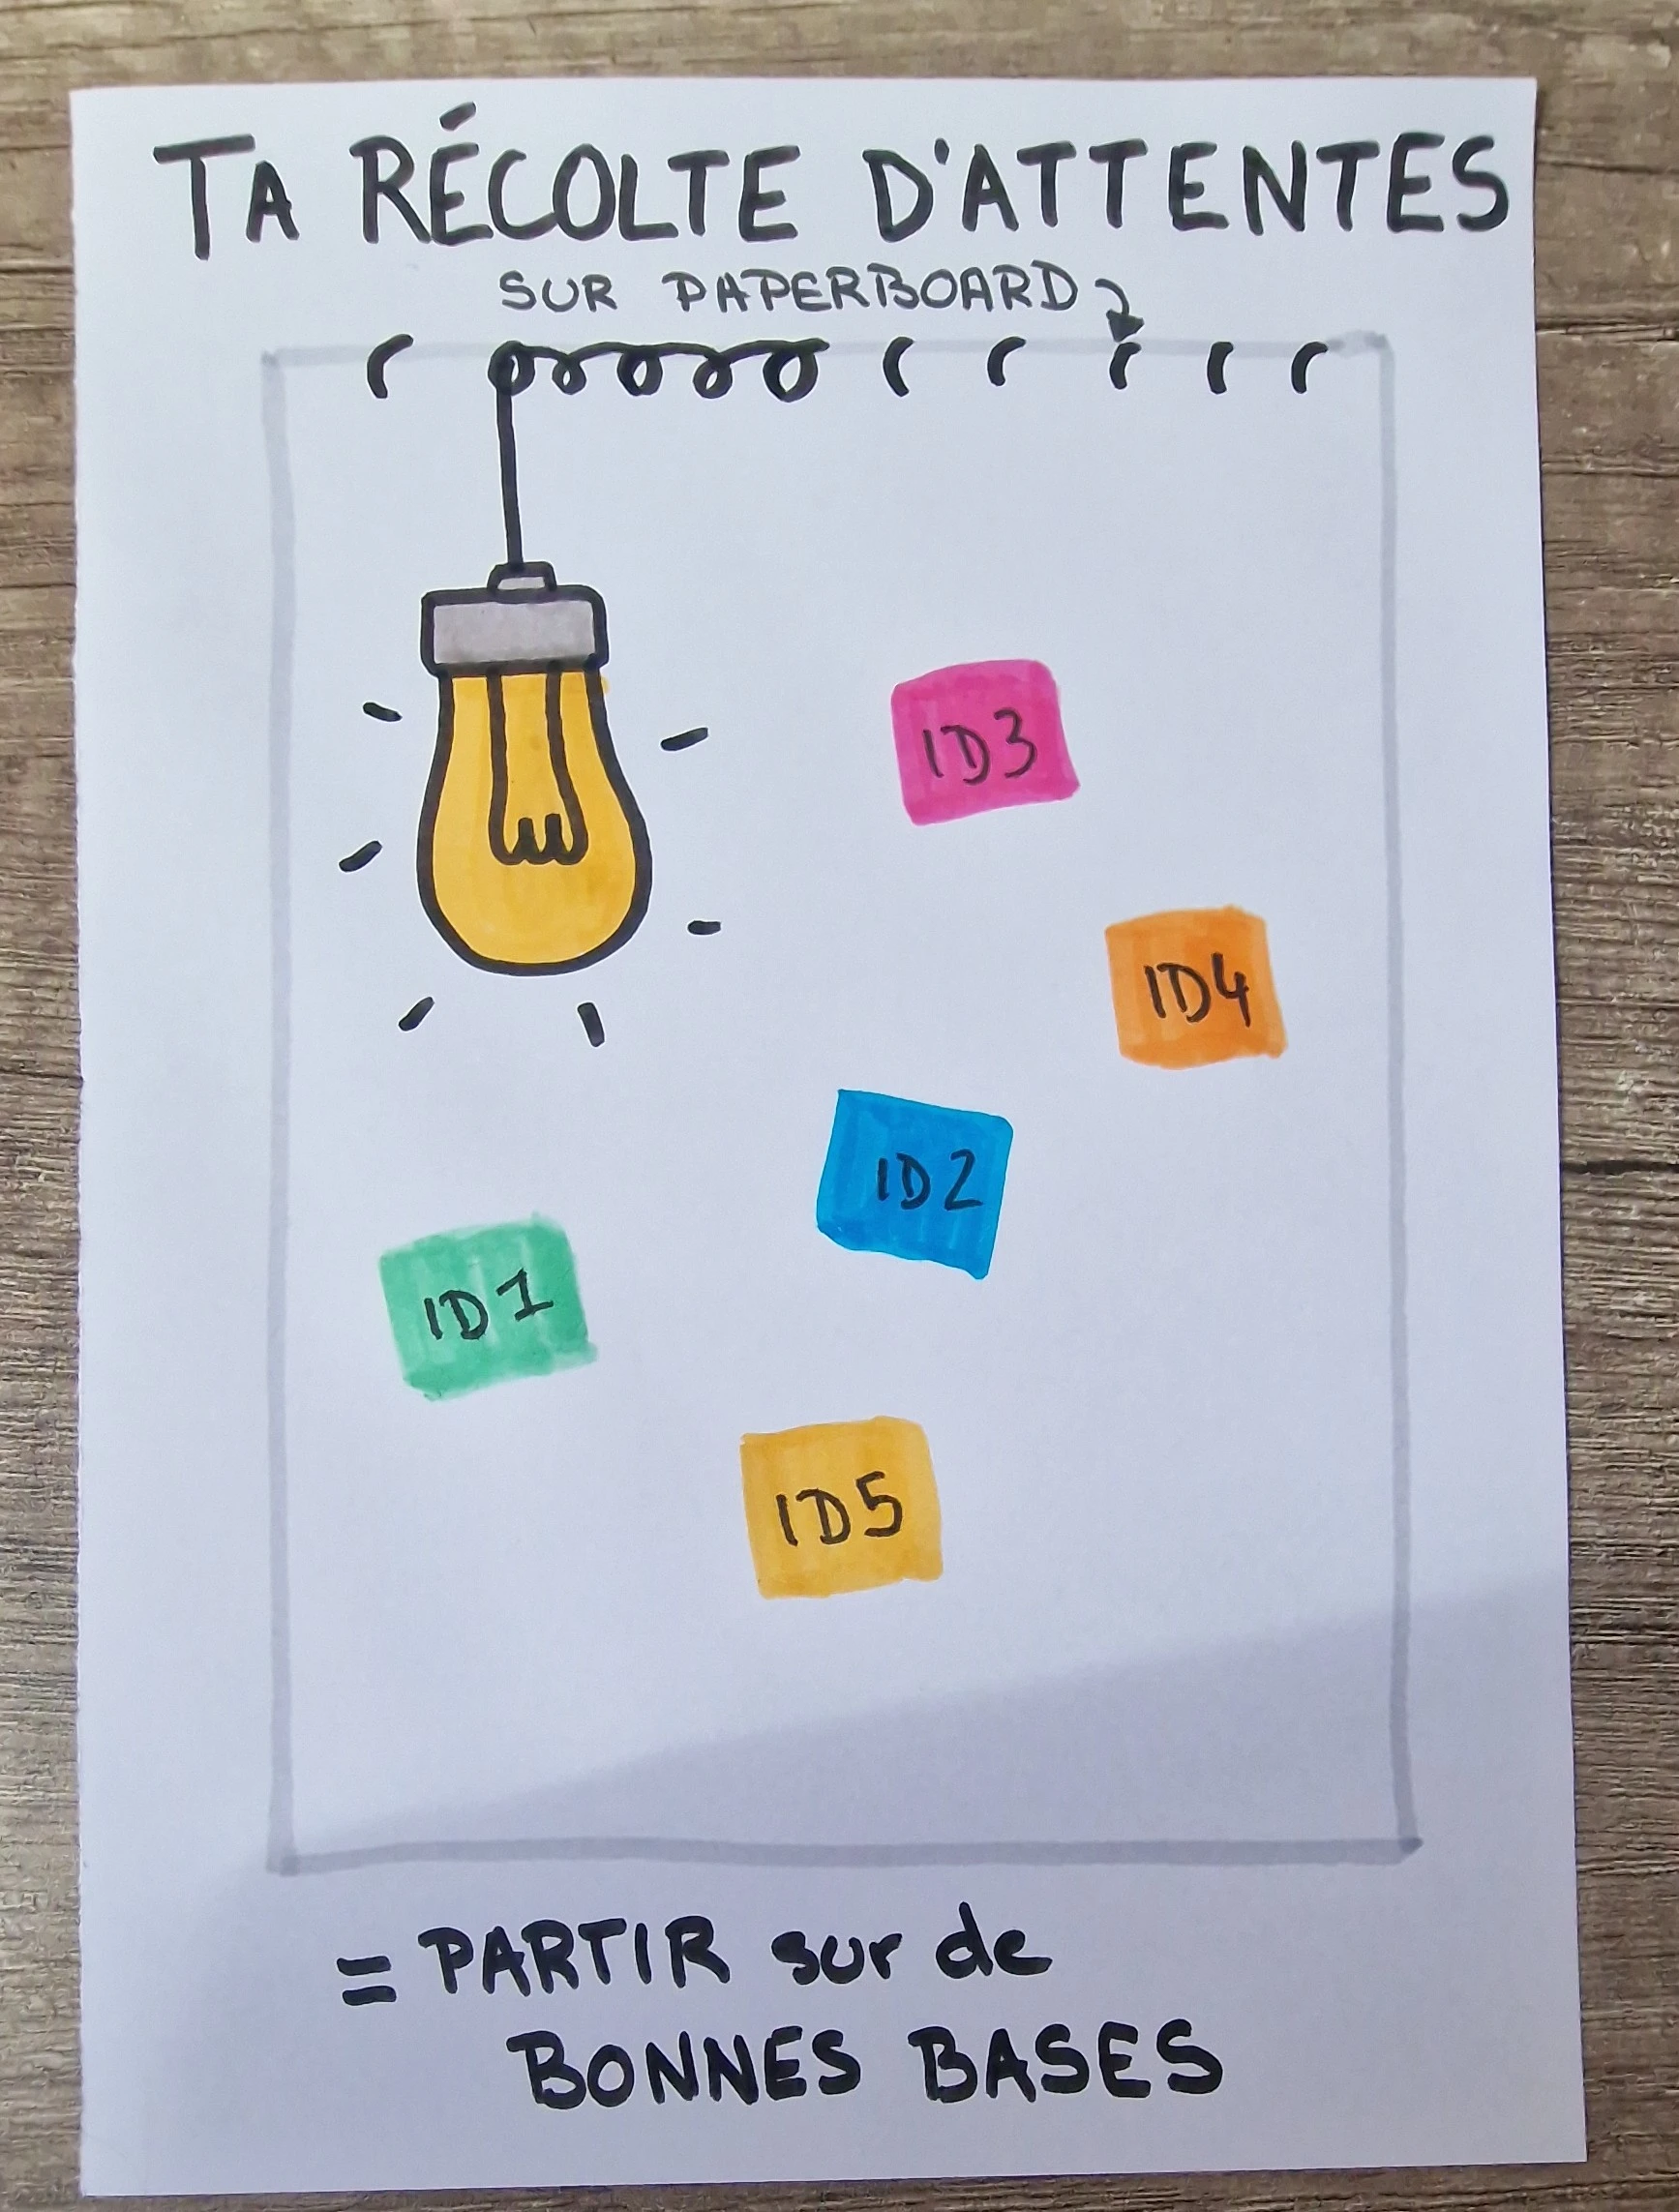 TA RÉCOLTE D'ATTENTES
SUR PAPERBOARD
ID3
ID4
ID2
ID1
ID5
= PARTIR sur de
BONNES BASES